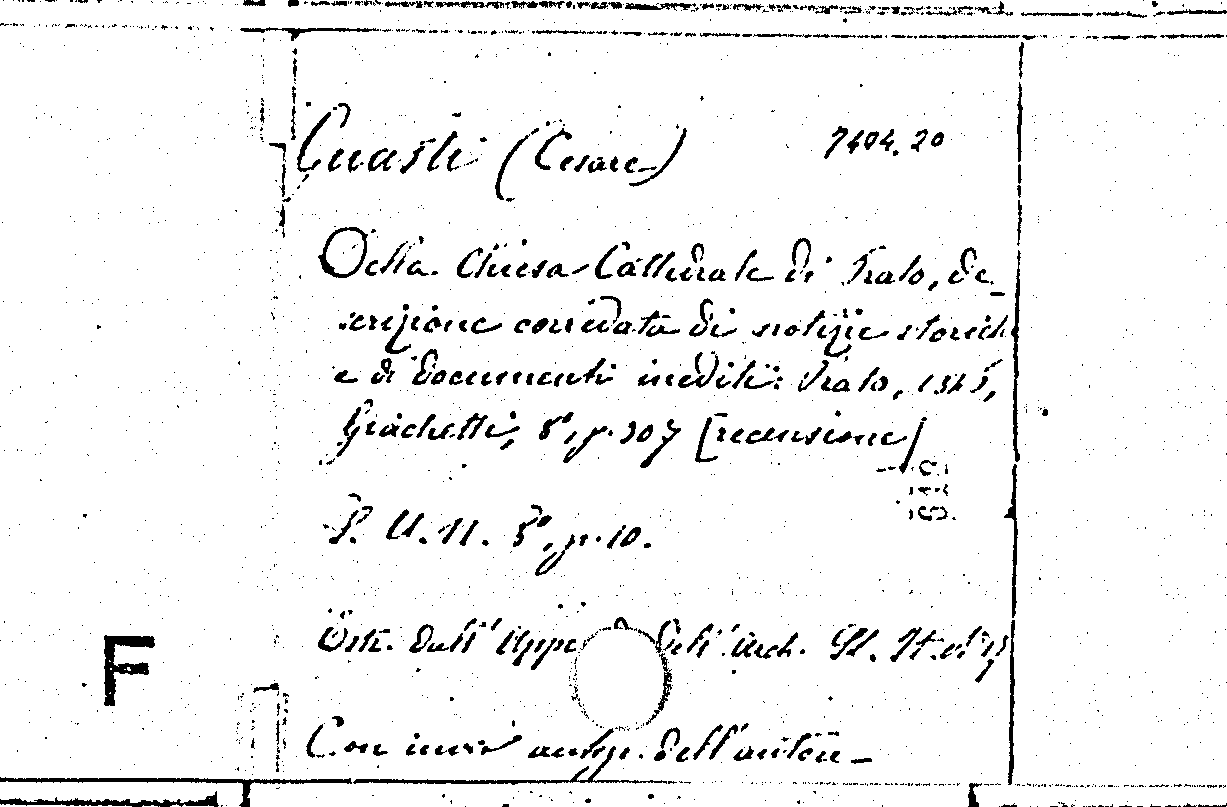 Guasti (Cesare) 7404.20
Della Chiesa Cattedrale di Prato, de-
scrizione corredata di notizie storiche
e di documenti inediti: Prato, 1845,
Giachetti, 8°, p. 307 [recensione]
S. U. N. 8°, p. 10.
Estr. dall' Appe dell' Arch. St. It. n°
F
Con invio autogr. dell'autore_